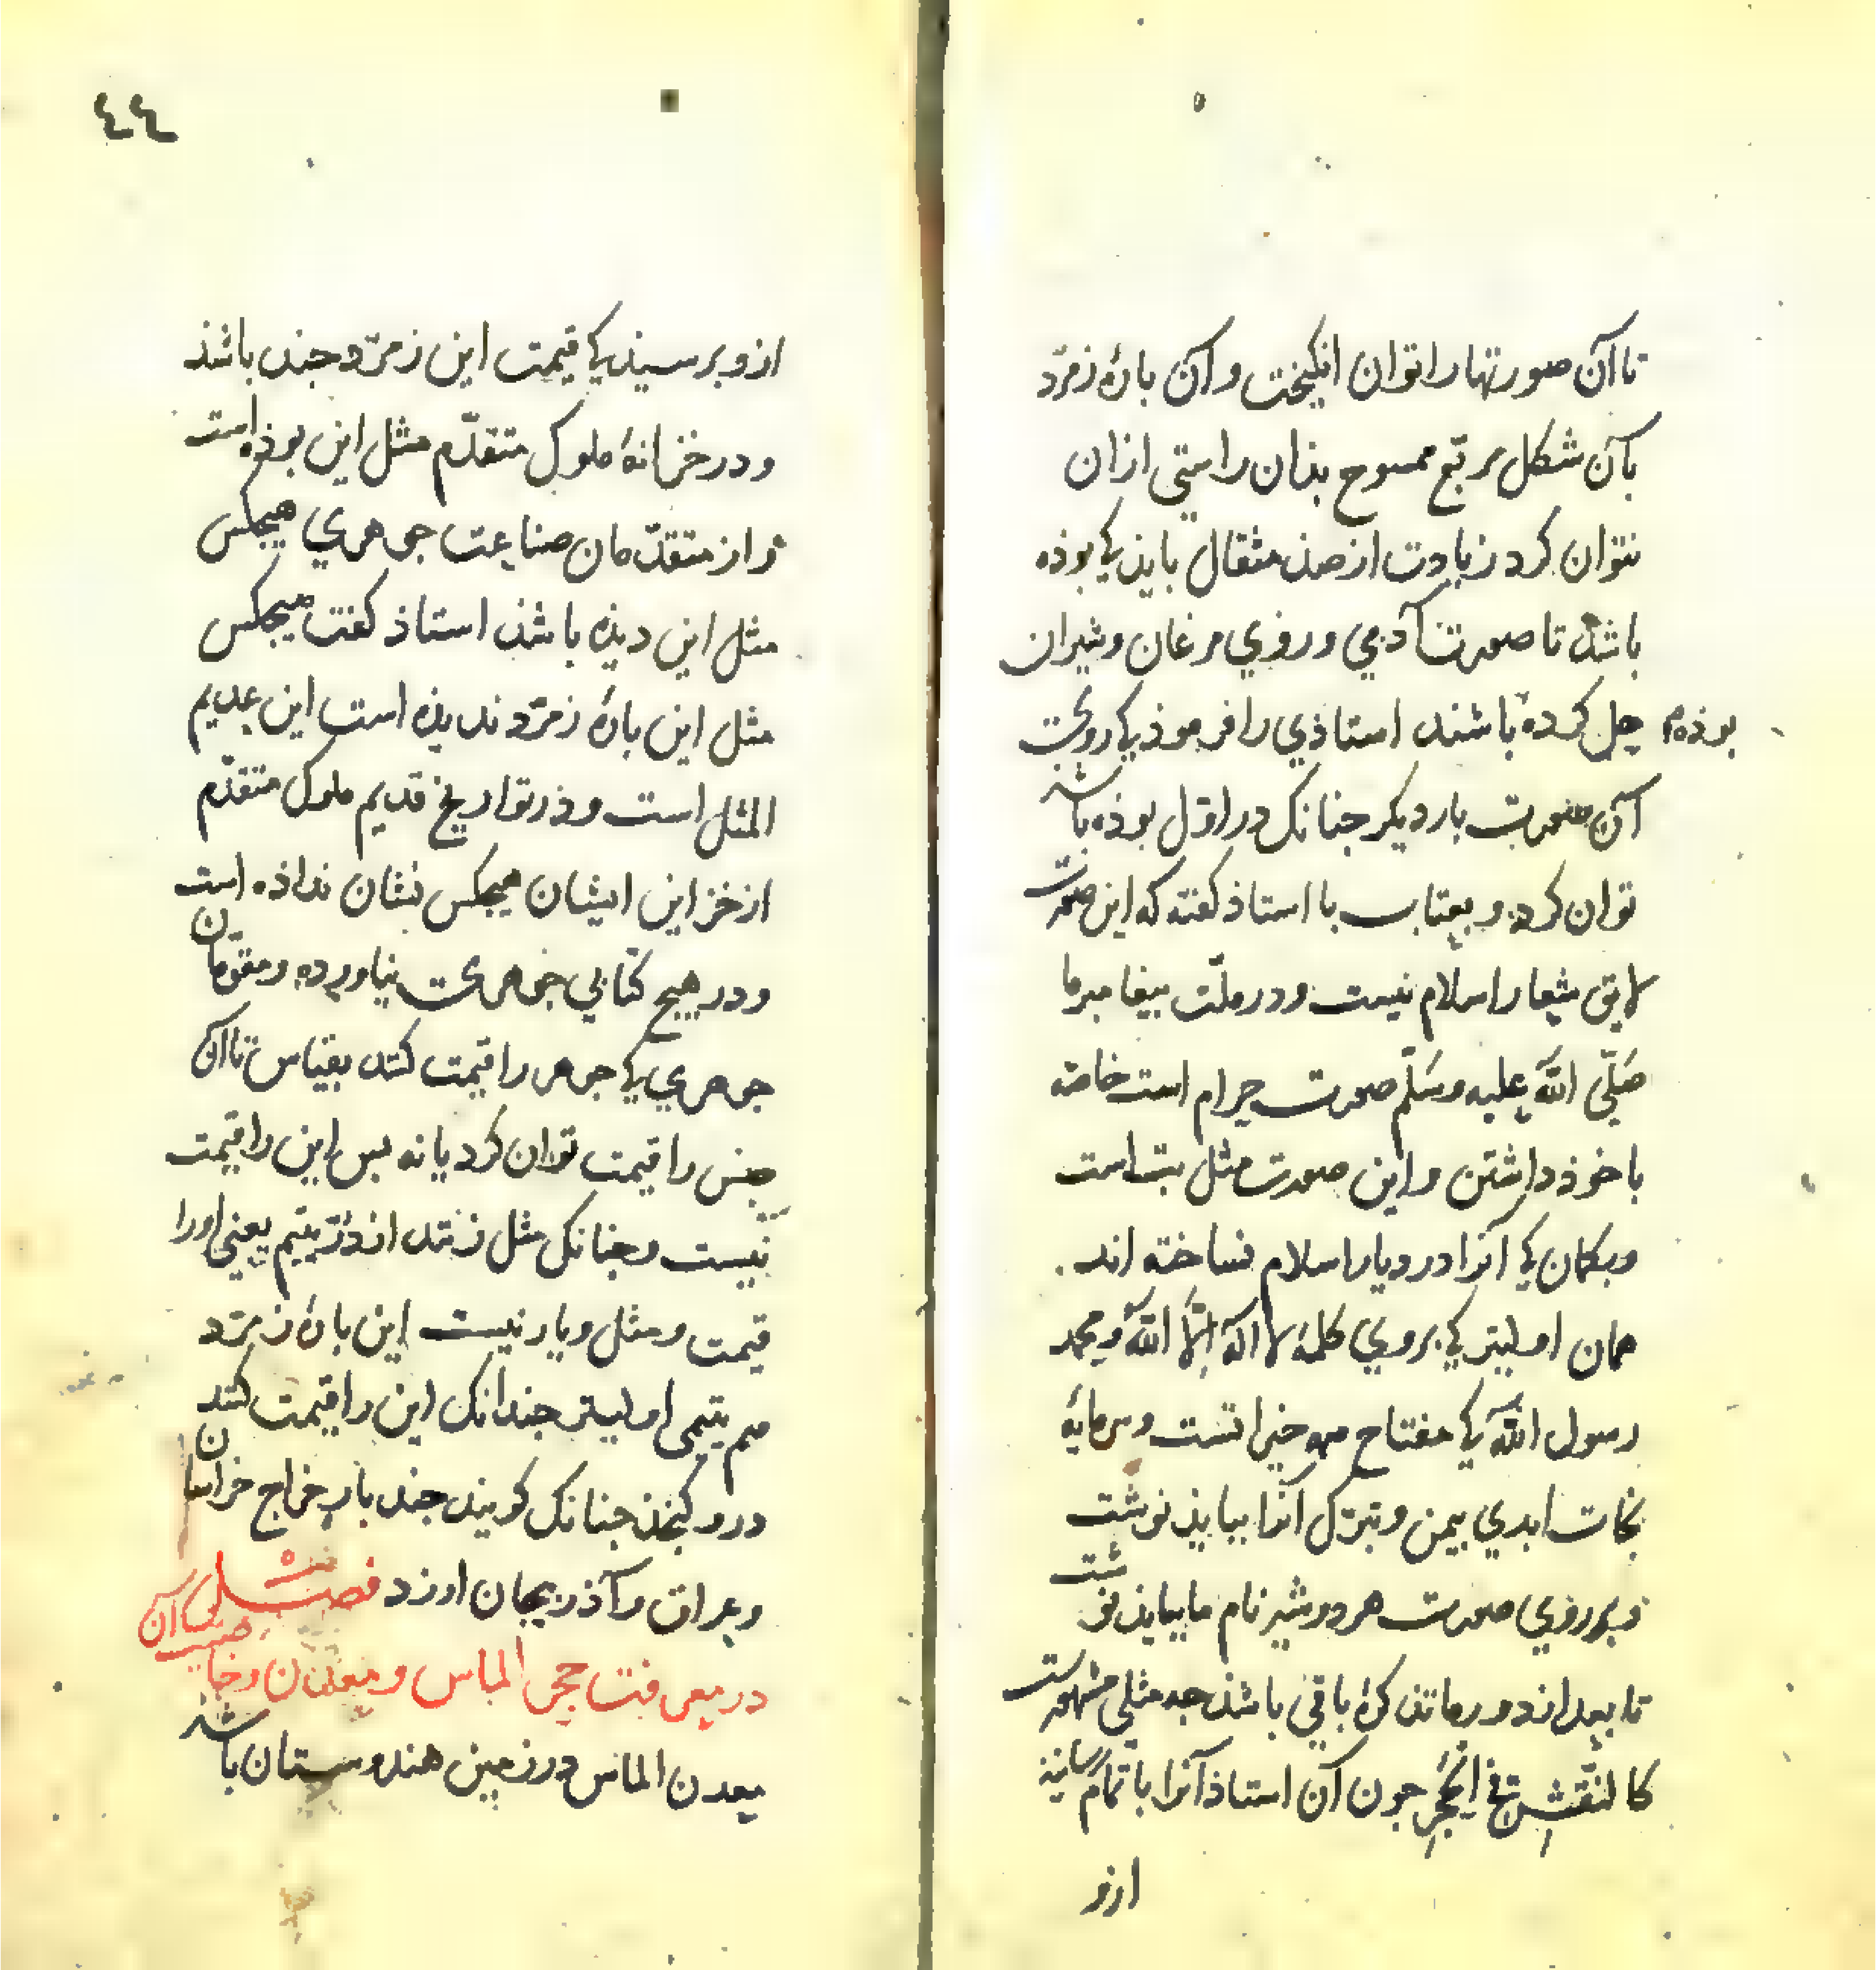 تا آن صورتها را توان انکیخت و آن بارهٔ زمرّد
بآن شکل مربّع ممسوح بذان راستی از ان
نتوان کرد زیادت از صذ مثقال بایذ کی بوذه
باشذ تا صورت آدمی و روی مرغان و شیران
بوذه حل کرده باشند استاذی را فرموذ کی
آن صورت بار دیکر جنانک در اوّل بوذه باشذ
توان کرد و بعتاب با استاذ کفته که این صورت
لایق شعار اسلام نیست و در ملّت بیغامبر ما
صَلّی اللّه علیه وسَلّم صورت حرام است خاصه
با خوذ داشتن و این صورت مثل بت است
وبکمان کی آنرا در دیار اسلام نساخته اند
همان اولیتر کی بر وی کلمهٔ لا اله الّا اللّه و محمد
رسول اللّه کی مفتاح همه خیراتست و سرمایهٔ
نجات ابدی بیمن و تبرّک آنرا ببایذ نوشت
و بر روی صورت هر دو شیر نام ما ببایذ نوشت
تا بعد از دور ما تذکرهٔ باقی باشذ جه مثلی مشهورست
کالنّقش فی الحجر جون آن استاذ آنرا باتمام رسانیذ
ازو
٤٤
ازو برسیند کی قیمت این زمرّد جند باشذ
و در خزانهٔ ملوک متقدّم مثل این بوذه است
و از متقدّمان صناعت جوهری هیجکس
مثل این دیذه باشذ استاذ کفت هیجکس
مثل این بارهٔ زمرّد ندیذه است این عدیم
المثل است و ذر تواریخ قدیم ملوک متقدّم
از خزاین ایشان هیجکس نشان نداذه است
و در هیج کتابی جوهری نیاورده و مقوّمان
جوهری کی جوهر را قیمت کنند بقیاس تا آن
جنس را قیمت توان کرد یا نه بس این را قیمت
نیست و جنانک مثل زنند از درّ یتیم یعنی او را
قیمت و مثل و یار نیست این بارهٔ زمرّد
هم یتیمی اولیتر جندانک این را قیمت کنند
درو کنجذ جنانک کویند جند بار خراج خراسان
و عراق و آذربیجان ارزد فصل
در معرفت حجر الماس و معدن و خاصیت آن
معدن الماس در زمین هندوستان باشذ